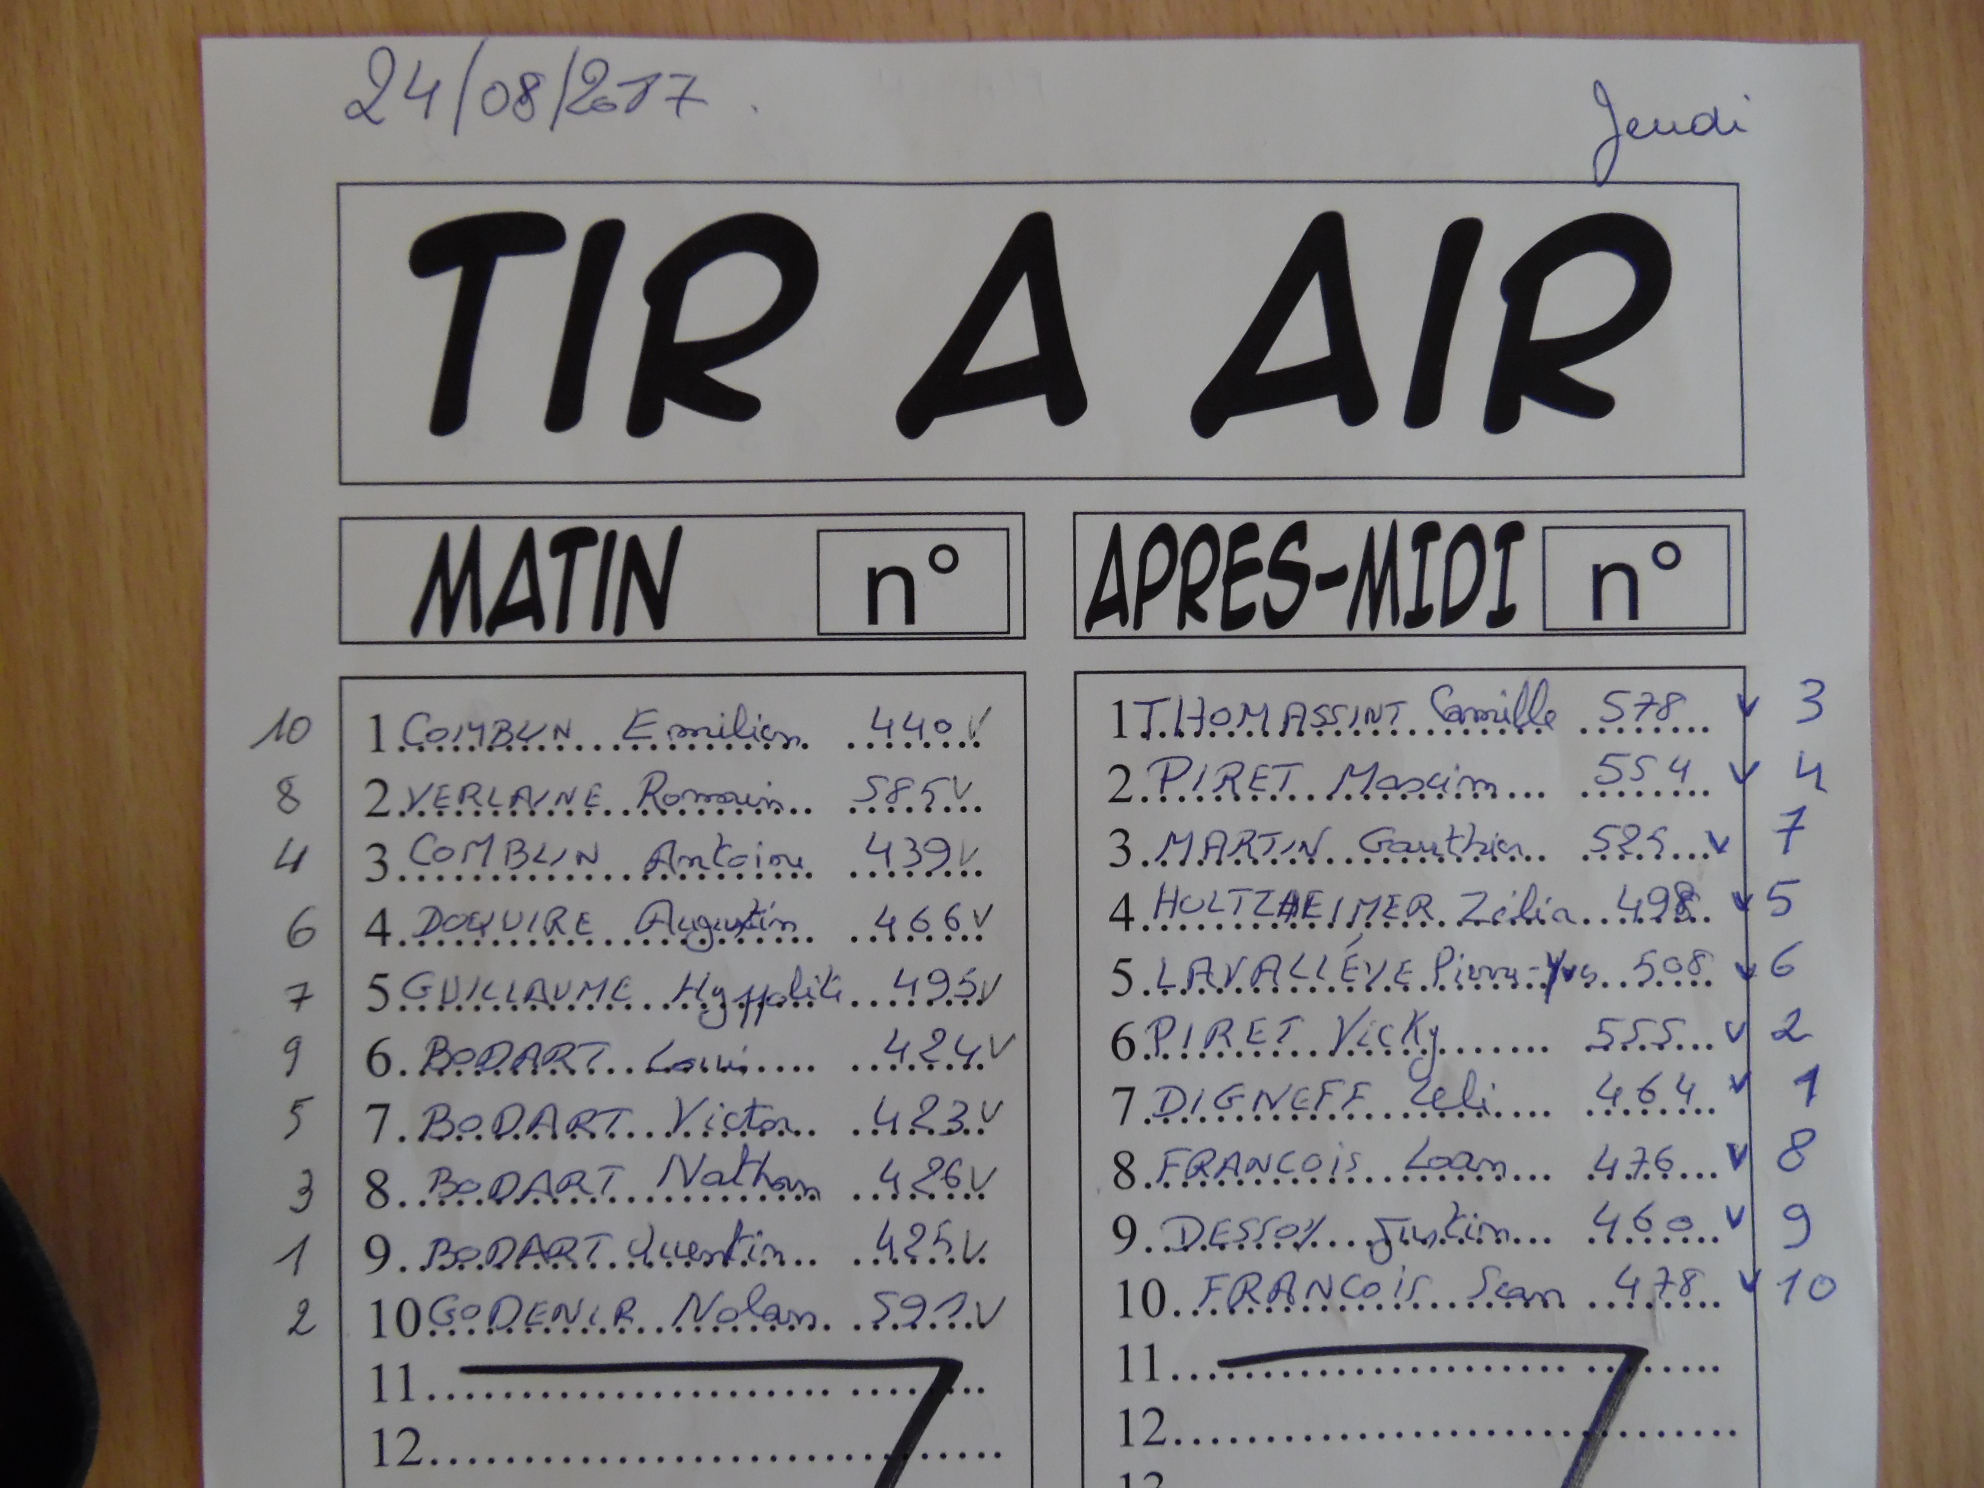 24/08/2017
Jeudi
TIR A AIR
MATIN n°
10 1. COMBLIN Emilien 440 V
8 2. VERLAINE Romain 585 V
4 3 COMBLIN Antoine 439 V
6 4. DOQUIRE Augustin 466 V
7 5 GUILLAUME Hyppolite 495 V
9 6. BODART Louis 424 V
5 7. BODART Victor 423 V
3 8. BODART Nathan 426 V
1 9. BODART Quentin 425 V
2 10 GODENIR Nolan 591 V
11
12
APRES-MIDI n°
1 THOMASSINT Camille 578 V 3
2. PIRET Maxim 554 V 4
3. MARTIN Gauthier 525 V 7
4. HOLTZHEIMER Zélia 498 V 5
5. LAVALLÉVE Pierre-Yves 508 V 6
6. PIRET Vicky 555 V 2
7. DIGNEFF 464 V 1
8. FRANCOIS Loan 476 V 8
9. DESSOY Justin 460 V 9
10. FRANCOIS Sean 478 V 10
11
12